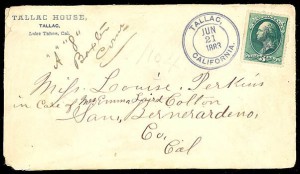 TALLAC HOUSE,
TALLAC,
Lake Tahoe, Cal.
TALLAC,
JUN
21
1883
CALIFORNIA.
Miss. Louise. Perkins
in Care of Mrs Emma Laird Colton
San. Bernardeno.
Co.
Cal